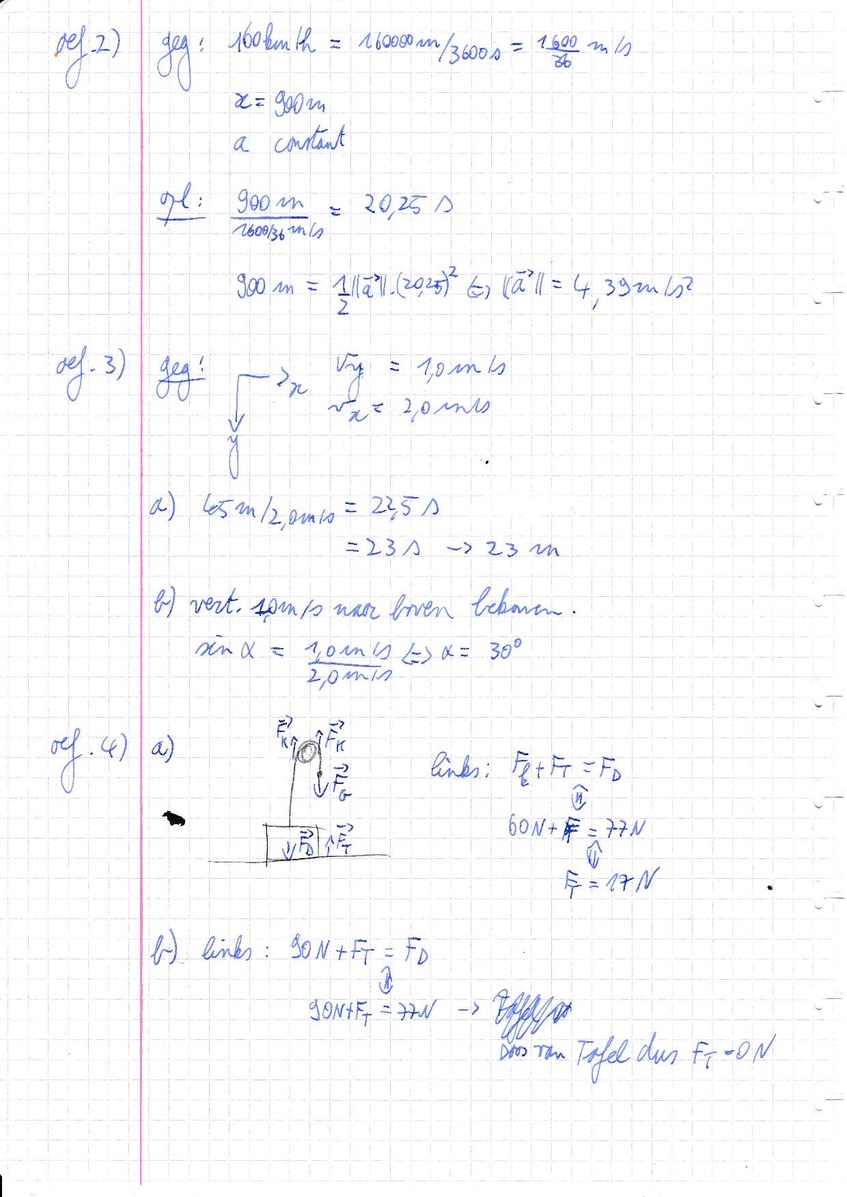 oef. 2) geg: 160 km/h = 160000 m/3600 s = 1600/36 m/s
x = 900 m
a constant
opl: 900 m / 1600/36 m/s = 20,25 s
900 m = 1/2 ||a⃗||.(20,25)² ⇔ ||a⃗|| = 4,39 m/s²
oef. 3) geg: x vy = 1,0 m/s
vx = 2,0 m/s
y
a) 45 m/2,0 m/s = 22,5 s
= 23 s → 23 m
b) vert. 1,0 m/s naar boven bekomen.
sin α = 1,0 m/s / 2,0 m/s ⇔ α = 30°
oef. 4) a) F⃗K F⃗K
F⃗G
F⃗D F⃗T
links: Fk + FT = FD
⇕
60 N + F = 77 N
⇕
FT = 17 N
b) links: 90 N + FT = FD
⇕
90N + FT = 77 N →
Doos van Tafel dus FT = 0 N